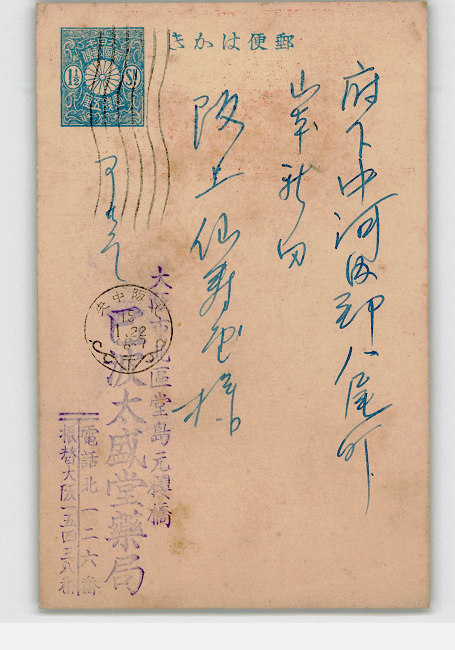 郵便はかき
1½ Sn
府下中河内郡八尾町
山本新田
阪上仙寿堂様
大阪市北區堂島元櫻橋
太盛堂藥局
電話北一二六番
振替大阪一五四三八番
大阪中央
15
1.22